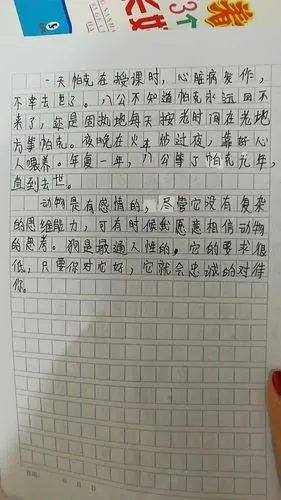 着
3个
一天帕克在授课时,心脏病复作,
不幸去世了。八公不知道帕克永远回不
来了,还是固执地每天按老时间在老地
方等帕克。夜晚在火车伤过夜,靠好心
人喂养。年复一年,八公等了帕克九年,
直到去世。
动物是有感情的,尽管它没有复杂
的思维能力,可有时候我愿意相信动物
的思考。狗是最通人性的。它的要求很
低,只要你对它好,它就会忠诚的对待
你。
年 月 日